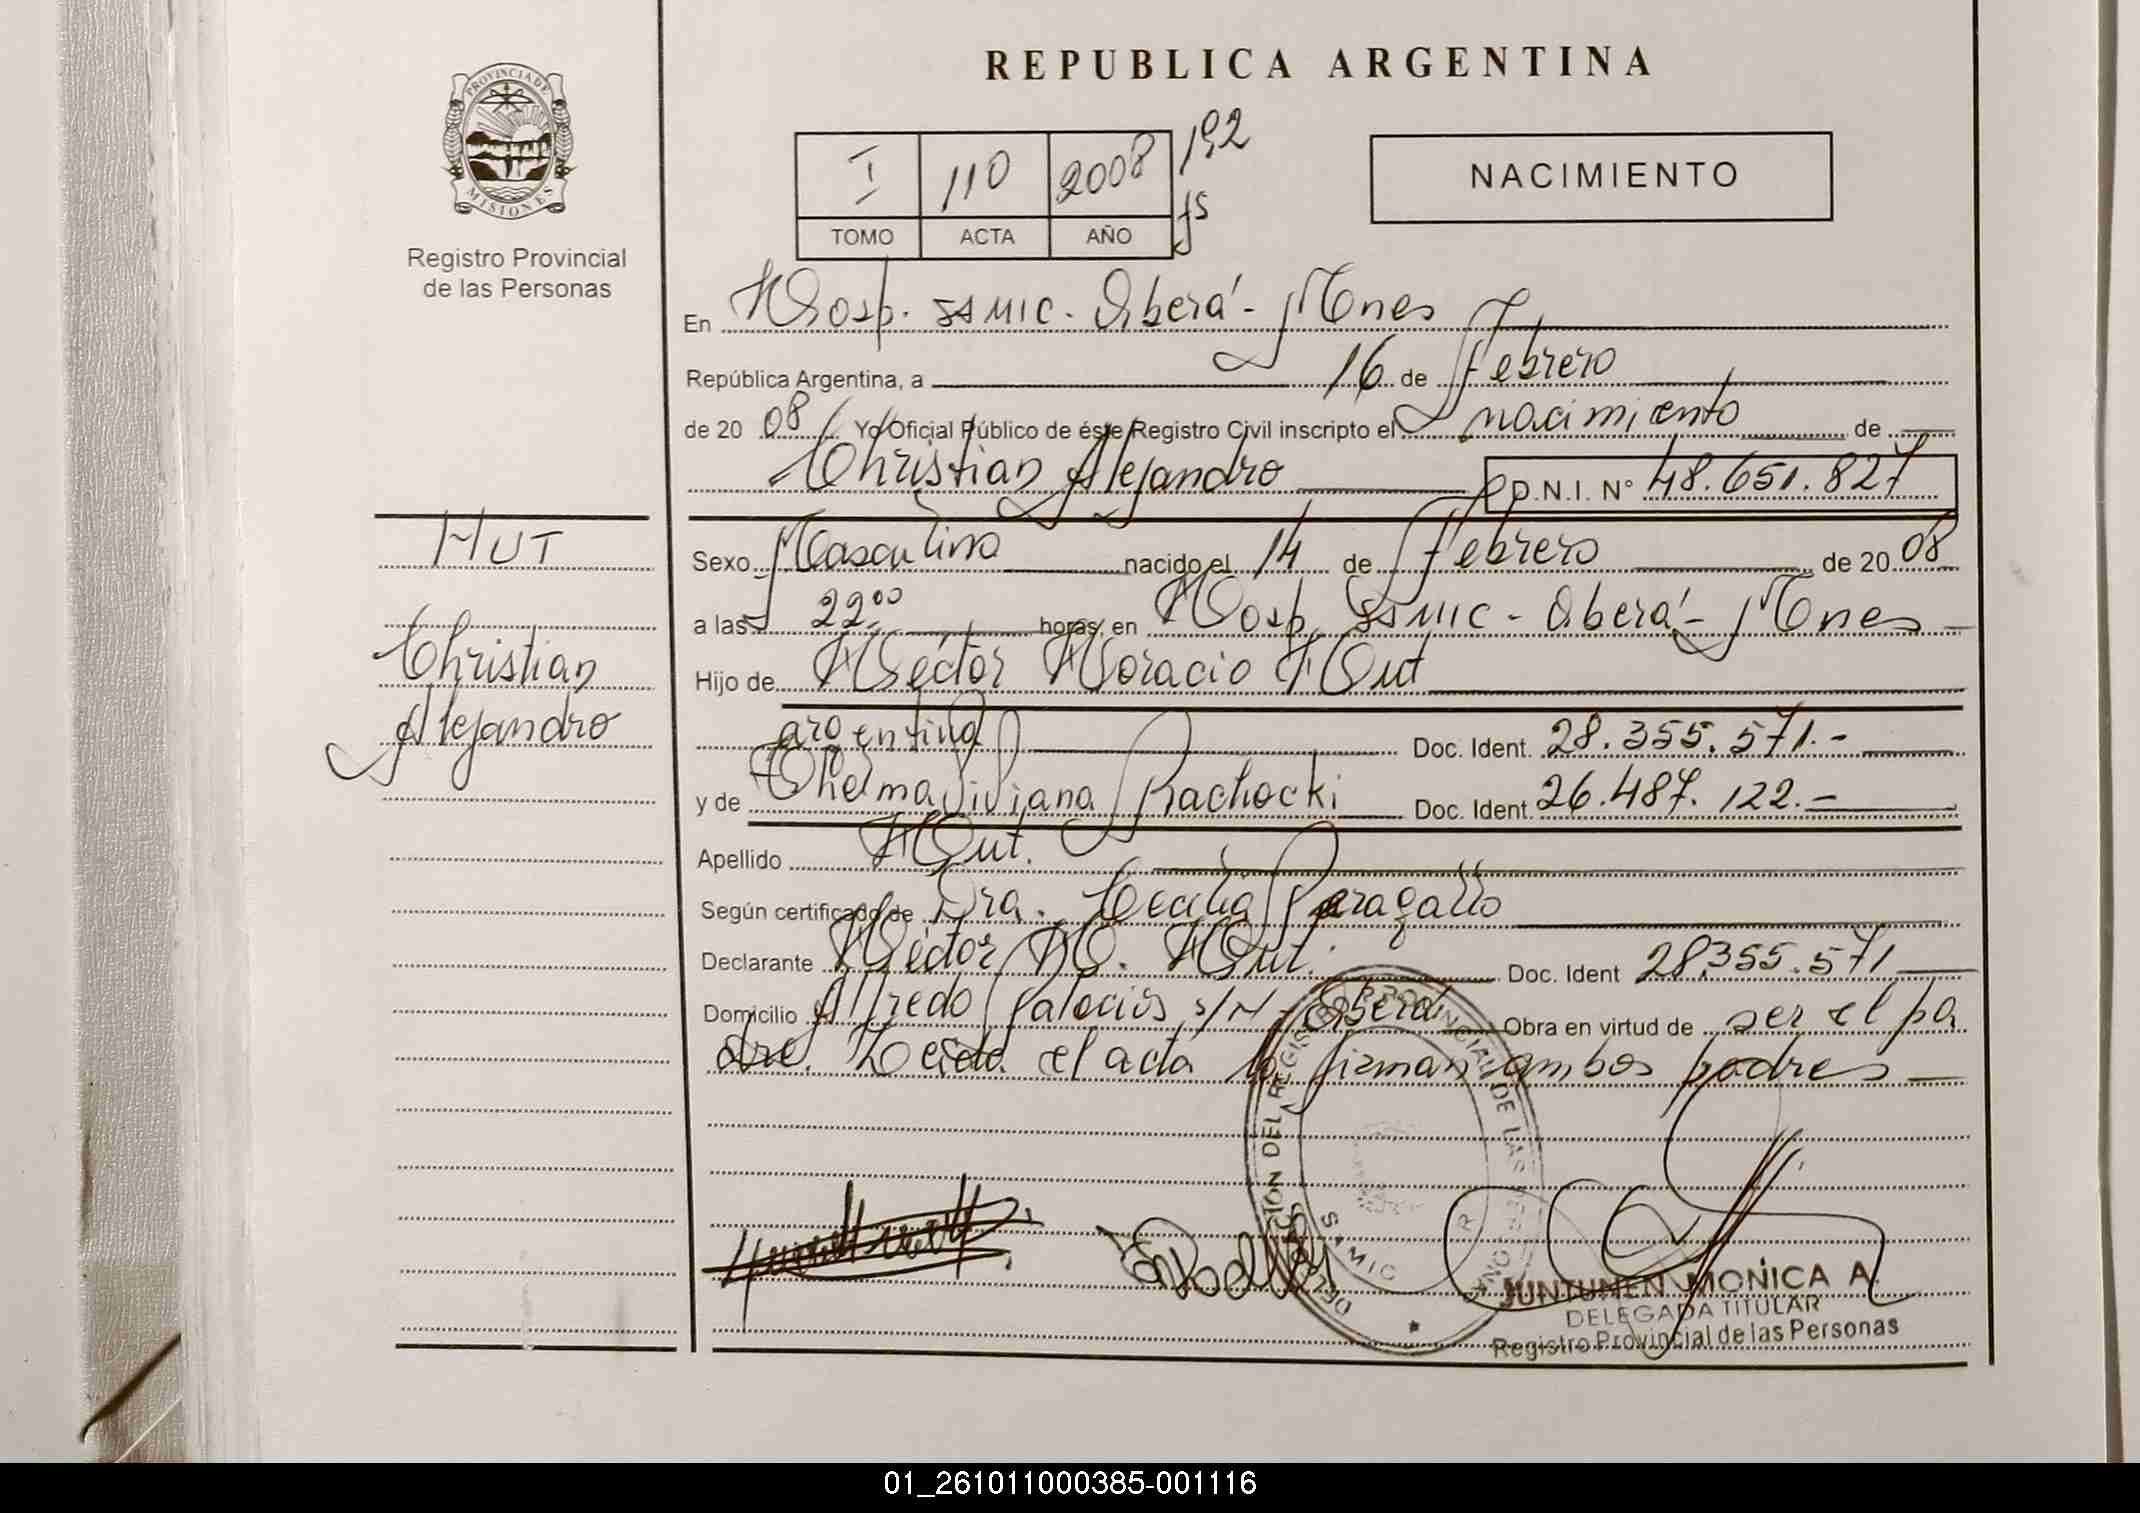 REPUBLICA ARGENTINA
PROVINCIA DE
MISIONES
Registro Provincial
de las Personas
I 110 2008 192
TOMO ACTA AÑO fs
NACIMIENTO
En Hosp. SAMIC - Oberá - Mnes
República Argentina, a 16 de Febrero
de 20 08 Yo Oficial Público de éste Registro Civil inscripto el nacimiento de
Christian Alejandro D.N.I. N° 48.651.827
HUT
Christian
Alejandro
Sexo Masculino nacido el 14 de Febrero de 20 08
a las 22.00 horas, en Hosp. SAMIC - Oberá - Mnes
Hijo de Héctor Horacio Hut
argentino Doc. Ident. 28.355.571.-
y de Thelma Viviana Rachocki Doc. Ident. 26.487.122.-
Apellido Hut.
Según certificado de Dra. Cecilia Peragallo
Declarante Héctor H. Hut. Doc. Ident 28.355.571
Domicilio Alfredo Palacios s/N - Oberá Obra en virtud de ser el pa
dre. Leída el acta la firman ambos padres
SAMIC
JUNTUNEN MONICA A.
DELEGADA TITULAR
Registro Provincial de las Personas
01_261011000385-001116